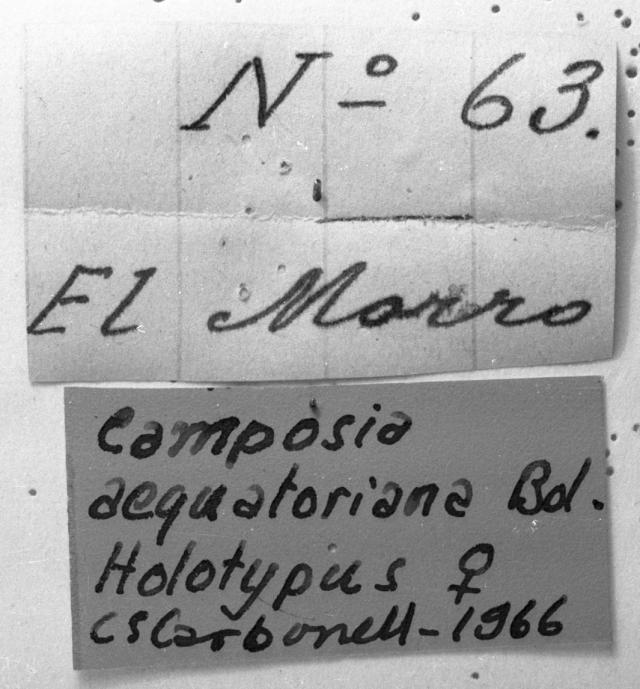 Nº 63.
El Morro
Camposia
aequatoriana Bol.
Holotypus ♀
CSCarbonell-1966